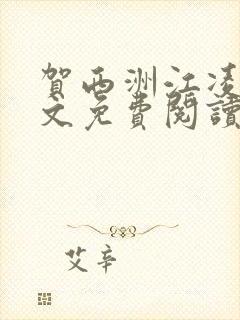 賀西洲江凌
文免費閱讀
艾辛